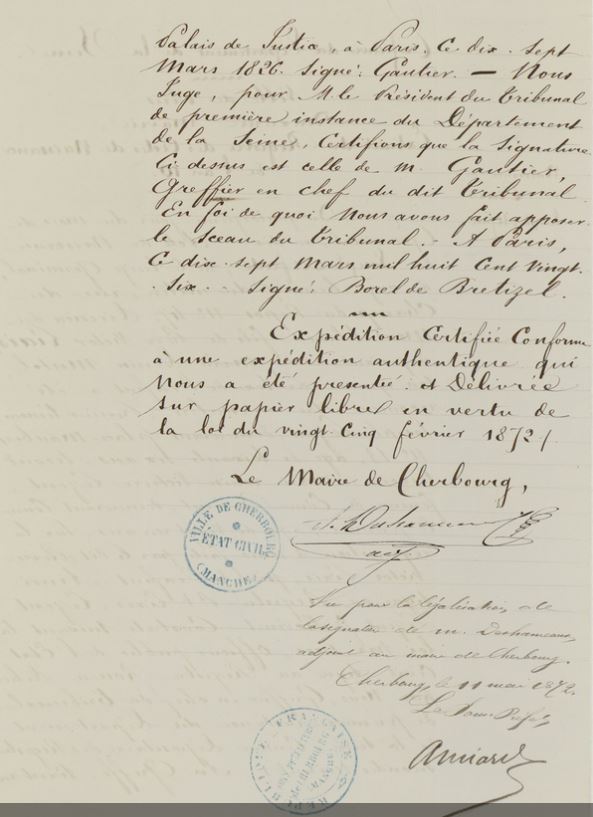 Palais de Justice, à Paris. Ce dix-sept
Mars 1826. Signé: Gautier. — Nous
Juge, pour M. le Président du tribunal
de première instance du Département
de la Seine, Certifions que la Signature
Ci dessus est celle de M. Gautier,
Greffier en chef du dit tribunal.
En foi de quoi nous avons fait apposer
le sceau du tribunal. - A Paris,
Ce dix-sept Mars mil huit Cent vingt
Six. - Signé: Borel de Bretizel.
Expédition Certifiée Conforme
à une expédition authentique qui
nous a été presentée: et Délivrée
sur papier libre en vertu de
la loi du vingt Cinq février 1872.
Le Maire de Cherbourg,
adj.
VILLE DE CHERBOURG
ÉTAT CIVIL
(MANCHE)
Vu pour la légalisation de
la signature de M. Deshameaux,
adjoint au maire de Cherbourg.
Cherbourg, le 11 mai 1872.
Le Sous-Préfet,
RÉPUBLIQUE FRANÇAISE
Amiard